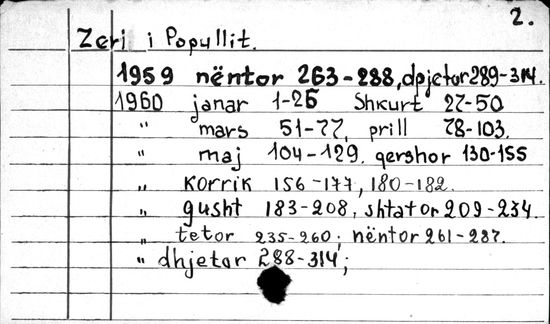 2.
Zeri i Popullit.
1959 nëntor 263-288, dpjetor 289-314.
1960 janar 1-26 Shkurt 27-50
" mars 51-77, prill 78-103.
" maj 104-129, qershor 130-155
" Korrik 156-177, 180-182.
" gusht 183-208, shtator 209-234.
" tetor 235-260; nëntor 261-287.
" dhjetor 288-314;